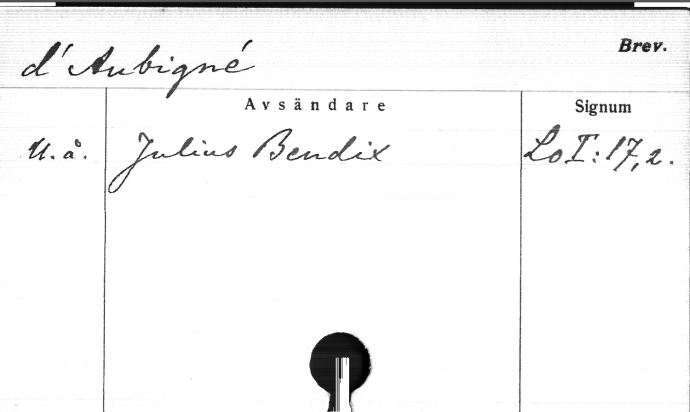 d'Aubigné
Brev.
Avsändare
Signum
U. å. Julius Bendix Lo I: 17, 2.